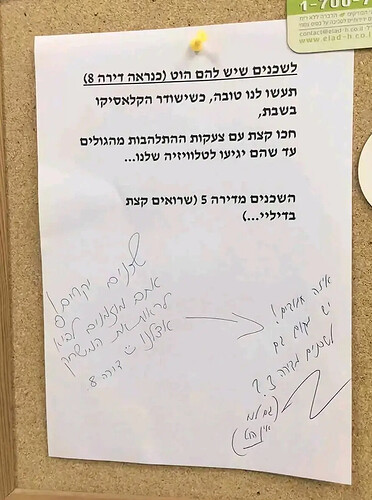 1-700-7
contact@elad-h.co.il
לשכנים שיש להם הוט (כנראה דירה 8)
תעשו לנו טובה, כשישודר הקלאסיקו
בשבת,
חכו קצת עם צעקות ההתלהבות מהגולים
עד שהם יגיעו לטלוויזיה שלנו...
השכנים מדירה 5 (שרואים קצת
בדיליי...)
שכנים יקרים!
אתם מוזמנים לבוא
לראות את המשחק
אצלנו
דירה 8
איזה חמודים!
יש מקום גם
לשכנים מדירה 3?
(גם לנו
אין הוט)